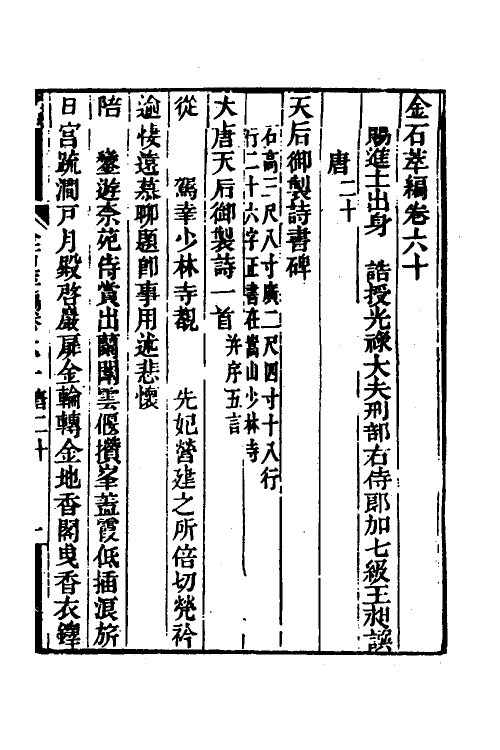 金石萃編卷六十
賜進士出身 誥授光祿大夫刑部右侍郎加七級王昶譔
唐二十
天后御製詩書碑
石高三尺八寸廣二尺四寸十八行
行二十六字正書在嵩山少林寺
大唐天后御製詩一首并序五言
從 駕幸少林寺覩 先妃營建之所倍切煢衿
逾悽遠慕聊題卽事用述悲懷
陪 鑾遊柰苑侍賞出蘭闈雲偃攢峯蓋霞低插浪旂
日宮疏澗戸月殿啓嚴扉金輪轉金地香閣曳香衣鐸
金石萃編卷六十 唐二十 一